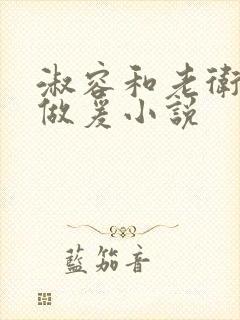 淑容和老衛
做爰小説
藍笳音